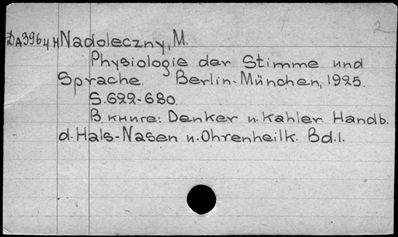 DA396ч Н Nadoleczny, M.
Physiologie der Stimme und
Sprache. Berlin-München, 1925.
S.622-680
В книге: Denker u. Kahler Handb.
d. Hals-Nasen u. Ohrenheilk. Bd.I.
2